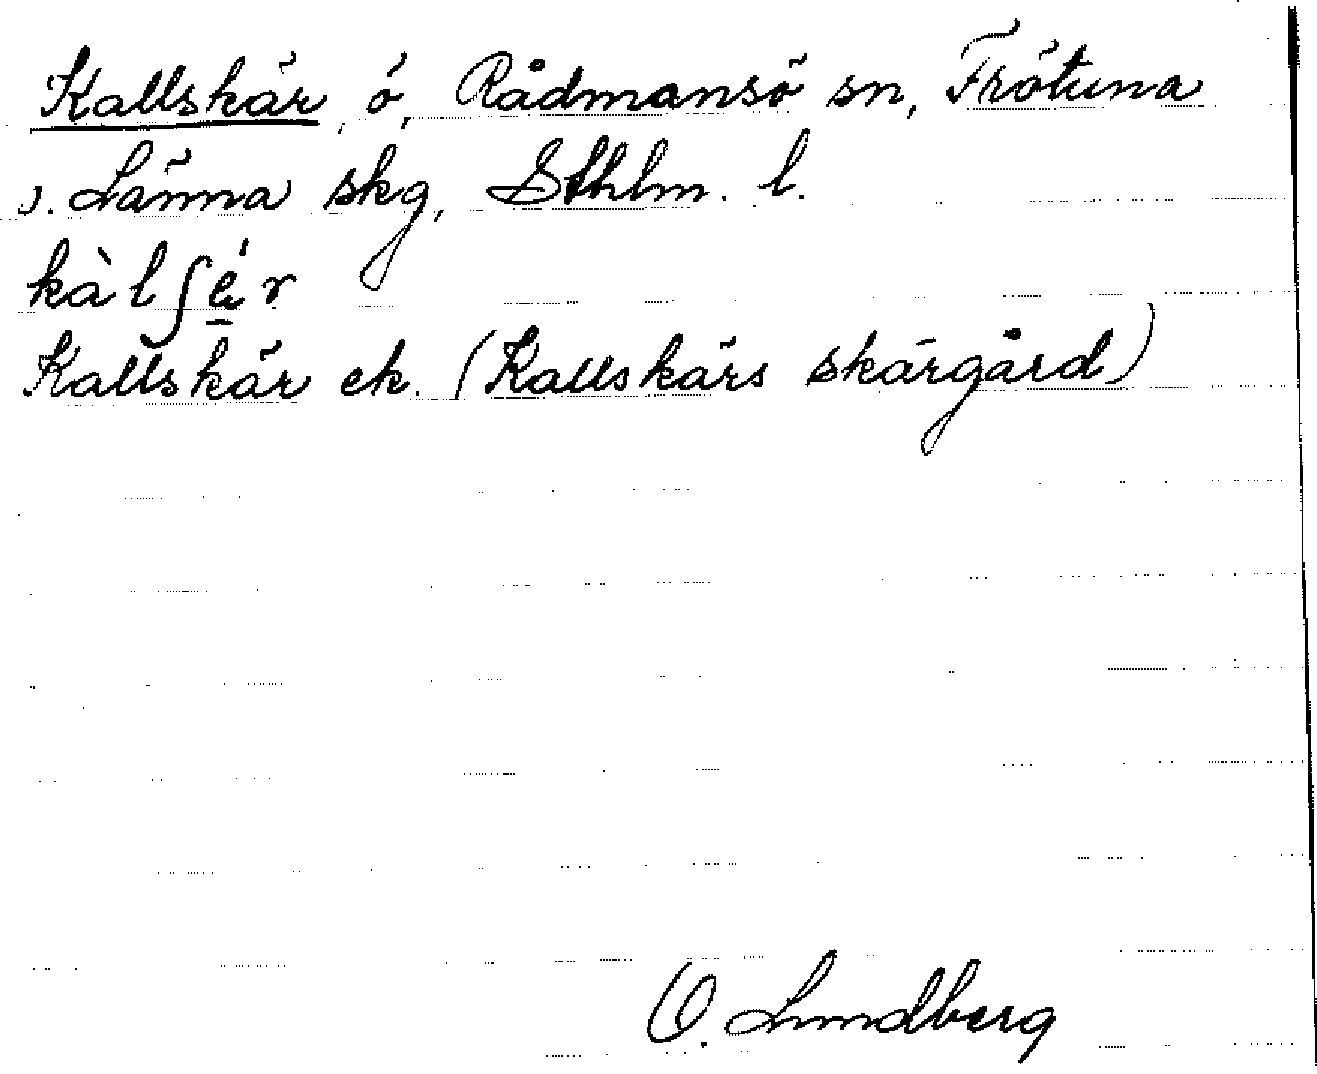 Kallskär, ö, Rådmansö sn, Frötuna
o. Länna skg, Sthlm. l.
kàlʃe̱ˈr
Kallskär ek. (Kallskärs skärgård)
O. Lundberg